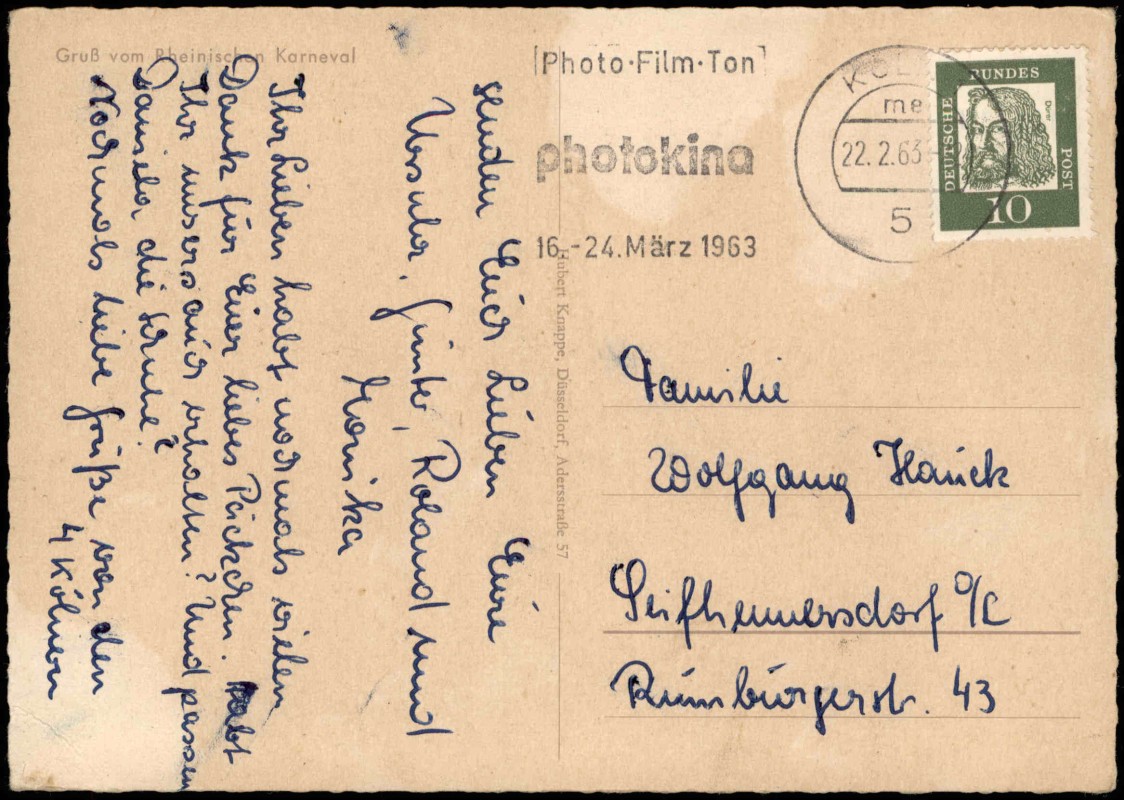 Gruß vom Rheinischen Karneval
senden Euch Lieben Eure
Ursula, Günter, Roland und
Monika
Ihr Lieben habt nochmals vielen
Dank für Euer liebes Päckchen. Habt
Ihr unsers auch erhalten? Und passen
Daniela die Schuhe?
Nochmals liebe Grüße von den
4 Kölnern
Hubert Knappe, Düsseldorf, Adersstraße 57
Photo·Film·Ton
photokina
16.-24. März 1963
KÖL
me
22.2.63
5
DEUTSCHE
BUNDES
POST
Dürer
10
Familie
Wolfgang Hauck
Seifhennersdorf O/L
Rumburgerstr. 43